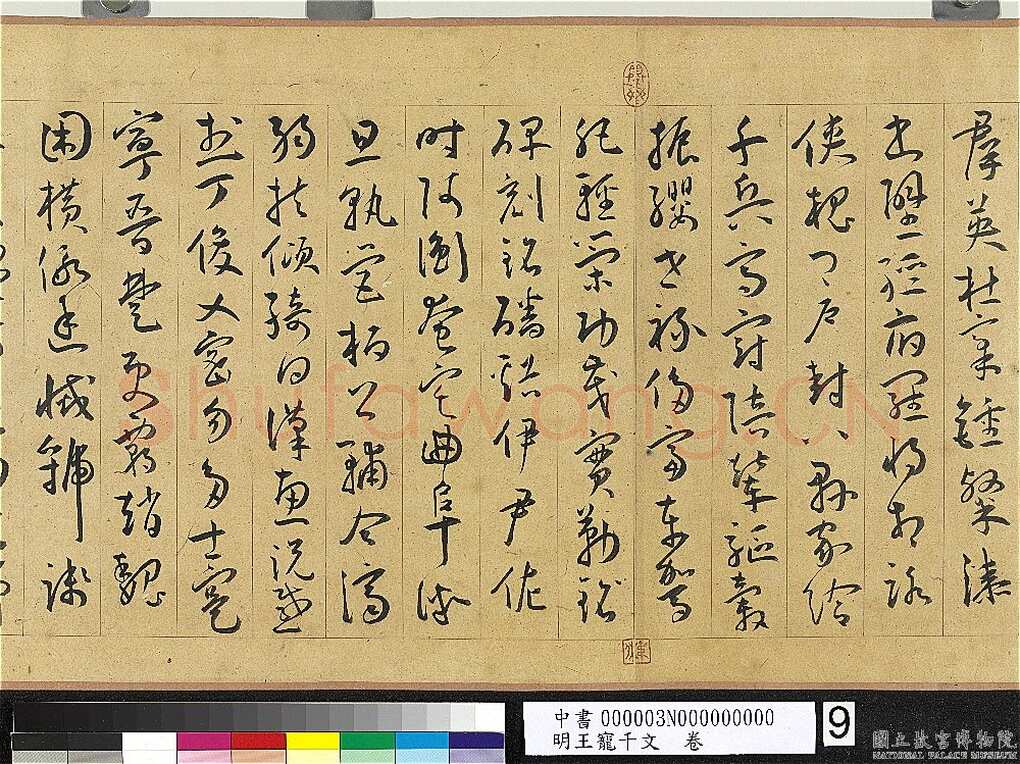 羣英杜稿鍾隸漆
書壁經府羅將相路
俠槐卿戶封八縣家給
千兵高冠陪輦驅轂
振纓世祿侈富車駕
肥輕策功茂實勒銘
碑刻銘磻溪伊尹佐
時阿衡奄宅曲阜微
旦孰營桓公輔合濟
弱扶傾綺回漢惠說感
武丁俊乂密勿多士寔
寧晉楚更霸趙魏
困橫假途滅虢踐
Shufawang.CN
中書 000003N000000000
明王寵千文 卷
9
國立故宮博物院
NATIONAL PALACE MUSEUM